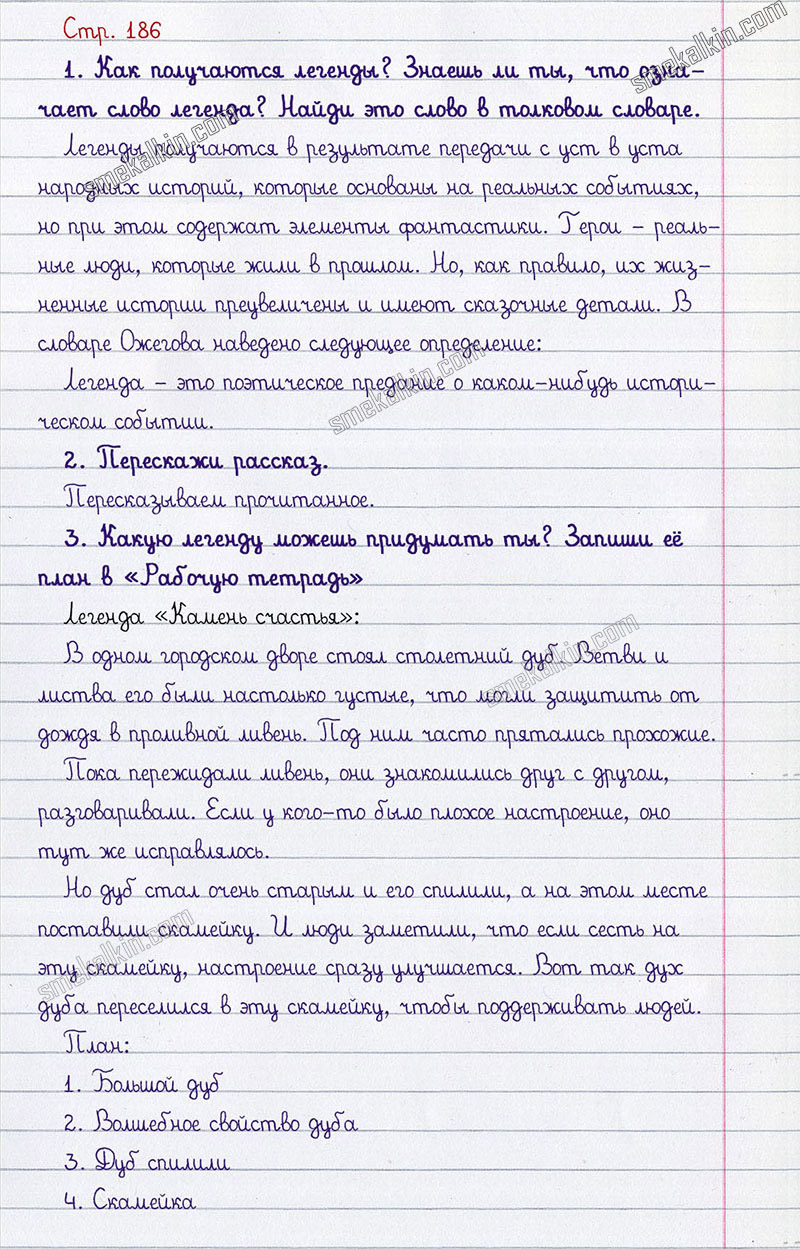 Стр. 186
1. Как получаются легенды? Знаешь ли ты, что озна-
чает слово легенда? Найди это слово в толковом словаре.
Легенды получаются в результате передачи с уст в уста
народных историй, которые основаны на реальных событиях,
но при этом содержат элементы фантастики. Герои – реаль-
ные люди, которые жили в прошлом. Но, как правило, их жиз-
ненные истории преувеличены и имеют сказочные детали. В
словаре Ожегова наведено следующее определение:
Легенда – это поэтическое предание о каком-нибудь истори-
ческом событии.
2. Перескажи рассказ.
Пересказываем прочитанное.
3. Какую легенду можешь придумать ты? Запиши её
план в «Рабочую тетрадь»
Легенда «Камень счастья»:
В одном городском дворе стоял столетний дуб. Ветви и
листва его были настолько густые, что могли защитить от
дождя в проливной ливень. Под ним часто прятались прохожие.
Пока пережидали ливень, они знакомились друг с другом,
разговаривали. Если у кого-то было плохое настроение, оно
тут же исправлялось.
Но дуб стал очень старым и его спилили, а на этом месте
поставили скамейку. И люди заметили, что если сесть на
эту скамейку, настроение сразу улучшается. Вот так дух
дуба переселился в эту скамейку, чтобы поддерживать людей.
План:
1. Большой дуб
2. Волшебное свойство дуба
3. Дуб спилили
4. Скамейка
smekalkin.com
smekalkin.com
smekalkin.com
smekalkin.com
smekalkin.com